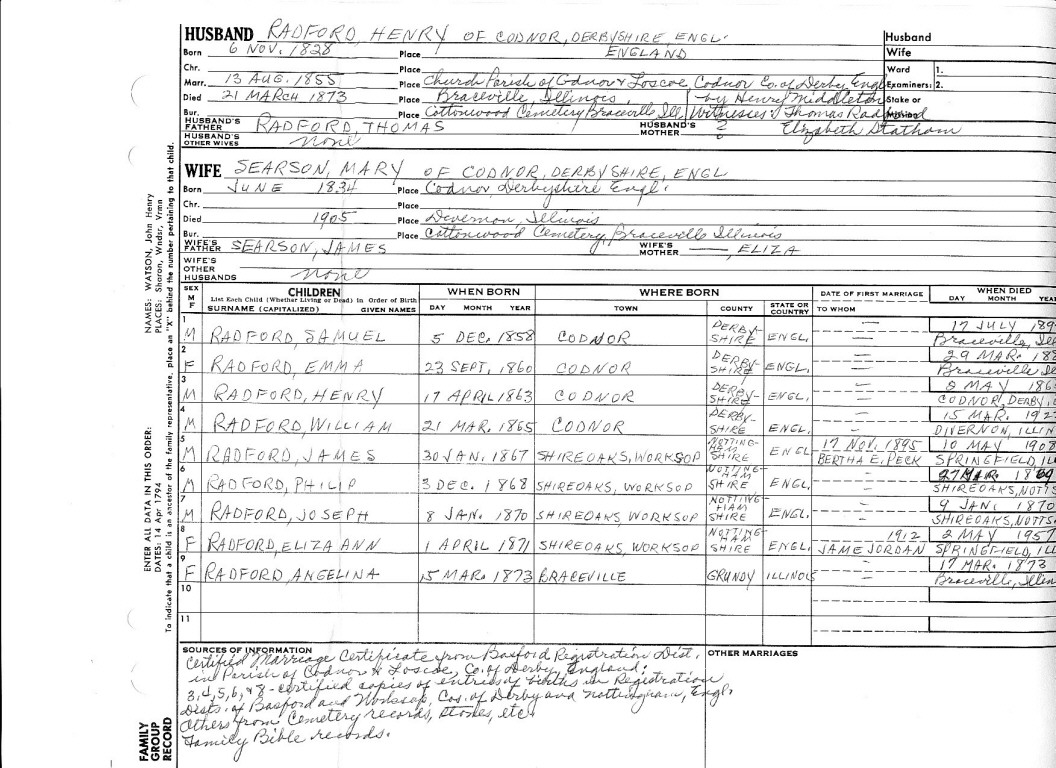 HUSBAND RADFORD, HENRY OF CODNOR, DERBYSHIRE, ENGL. Husband
Born 6 NOV. 1828 Place ENGLAND Wife
Chr. Place Ward 1.
Marr. 13 AUG. 1855 Place Church Parish of Codnor & Loscoe Codnor Co. of Derby, Engl Examiners: 2.
Died 21 MARCH 1873 Place Braceville, Illinois, by Henry Middleton Stake or
Bur. Place Cottonwood Cemetery Braceville Ill. Witnesses: Thomas Radford Mission
HUSBAND'S FATHER RADFORD, THOMAS HUSBAND'S MOTHER ? Elizabeth Statham
HUSBAND'S OTHER WIVES none
WIFE SEARSON, MARY OF CODNOR, DERBYSHIRE, ENGL
Born JUNE 1834 Place Codnor, Derbyshire Engl.
Chr. Place
Died 1905 Place Divernon, Illinois
Bur. Place Cottonwood Cemetery, Braceville Illinois
WIFE'S FATHER SEARSON, JAMES WIFE'S MOTHER —, ELIZA
WIFE'S OTHER HUSBANDS none
SEX M F CHILDREN List Each Child (Whether Living or Dead) in Order of Birth SURNAME (CAPITALIZED) GIVEN NAMES WHEN BORN DAY MONTH YEAR WHERE BORN TOWN COUNTY STATE OR COUNTRY DATE OF FIRST MARRIAGE TO WHOM WHEN DIED DAY MONTH YEAR
1 M RADFORD, SAMUEL 5 DEC. 1858 CODNOR DERBY-SHIRE ENGL. — — 17 JULY 189 Braceville, Ill
2 F RADFORD, EMMA 23 SEPT, 1860 CODNOR DERBY-SHIRE ENGL. — — 29 MAR. 188 Braceville Il
3 M RADFORD, HENRY 17 APRIL 1863 CODNOR DERBY-SHIRE ENGL. — — 8 MAY 186 CODNOR, DERBY,
4 M RADFORD, WILLIAM 21 MAR. 1865 CODNOR DERBY-SHIRE ENGL. — — 15 MAR. 192 DIVERNON, ILLIN
5 M RADFORD, JAMES 30 JAN. 1867 SHIREOAKS, WORKSOP NOTTING-HAM SHIRE ENGL 17 NOV. 1895 BERTHA E. PECK 10 MAY 1908 SPRINGFIELD, IL
6 M RADFORD, PHILIP 3 DEC. 1868 SHIREOAKS, WORKSOP NOTTING-HAM SHIRE ENGL. — — 27 MAR. 1869 SHIREOAKS, NOTTS
7 M RADFORD, JOSEPH 8 JAN. 1870 SHIREOAKS, WORKSOP NOTTING-HAM SHIRE ENGL. — — 9 JAN. 1870 SHIREOAKS, NOTTS.
8 F RADFORD, ELIZA ANN 1 APRIL 1871 SHIREOAKS, WORKSOP NOTTING-HAM SHIRE ENGL. 1912 JAME JORDAN 2 MAY 1957 SPRINGFIELD, ILL
9 F RADFORD, ANGELINA 15 MAR. 1873 BRACEVILLE GRUNDY ILLINOIS — — 17 MAR. 1873 Braceville, Illin
10
11
SOURCES OF INFORMATION OTHER MARRIAGES
Certified Marriage Certificate from Basford Registration Dist.
in Parish of Codnor & Loscoe, Co. of Derby, England.
3, 4, 5, 6, & 8 - certified copies of entries of births in Registration
Dists. of Basford and Worksop, Cos. of Derby and Nottingham, Engl.
Others from Cemetery records, stones, etc.
Family Bible records.
NAMES: WATSON, John Henry
PLACES: Sharon, Wndsr, Vrmn
ENTER ALL DATA IN THIS ORDER:
DATES: 14 Apr 1794
To indicate that a child is an ancestor of the family representative, place an "X" behind the number pertaining to that child.
FAMILY GROUP RECORD